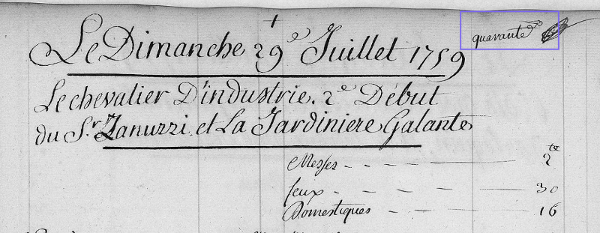 quarante
Le Dimanche 29e Juillet 1759
Le chevalier D'industrie. 2e Début
du Sr. Zanuzzi et La Jardiniere Galante
Messes - - - - 2 te
feux - - - - 30
Domestiques - - - - 16